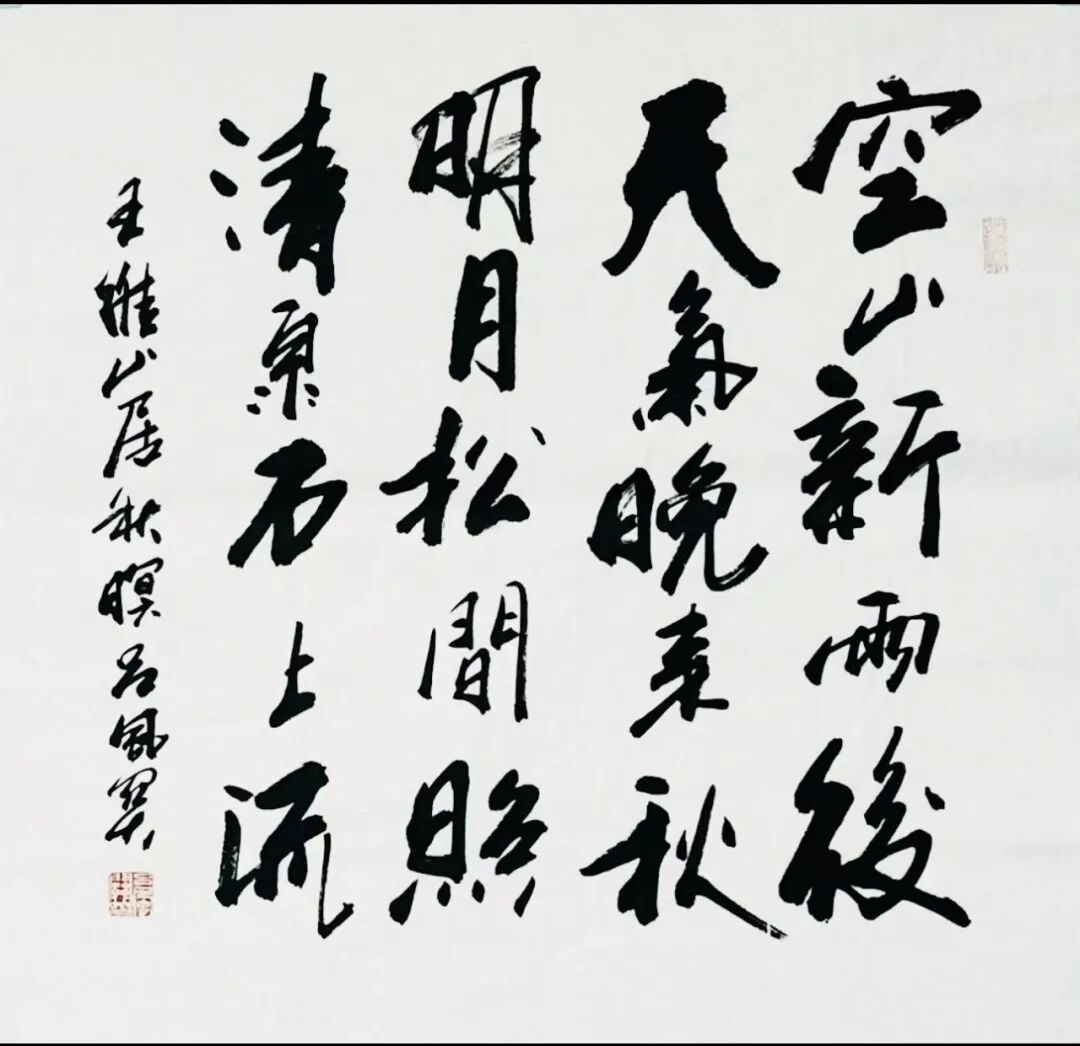 空山新雨後
天氣晚來秋
明月松間照
清泉石上流
王維山居秋暝 呂風